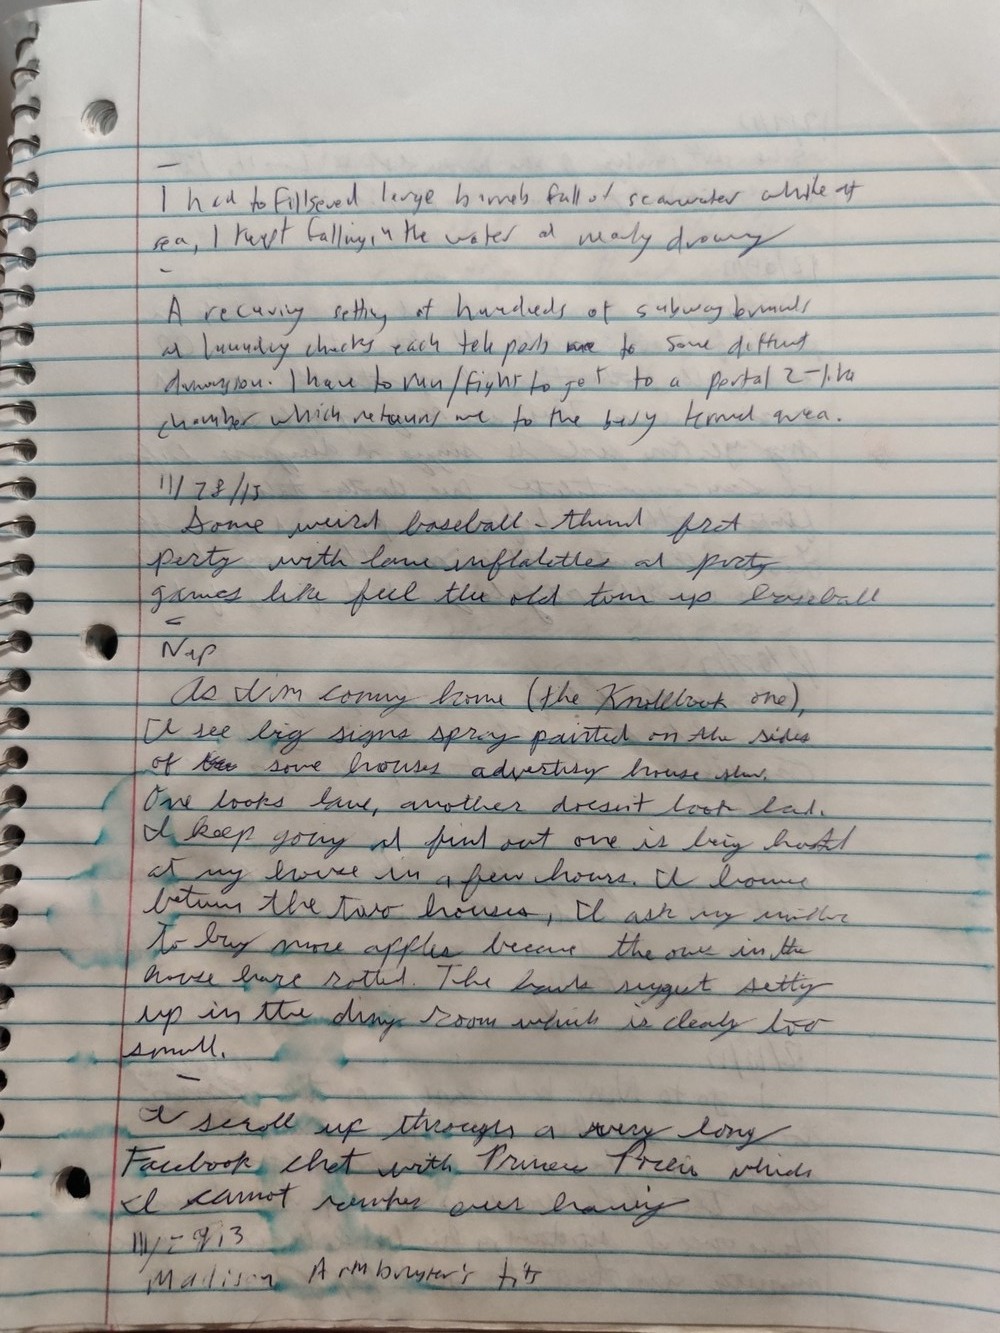 –
I had to fill several large barrels full of seawater while at
sea, I kept falling in the water and nearly drowning
–
A recurring setting of hundreds of subway
laundry each teleports me to some different
dimension. I have to run/fight to get to a portal 2-like
chamber which returns me to the busy terminal area.
11/28/13
Some weird baseball-themed frat
party with lame inflatables and party
games like feel the old torn up baseball
–
Nap
As I'm coming home (the Knollbrook one),
I see big signs spray painted on the sides
of some houses advertising house
One looks lame, another doesn't look bad.
I keep going and find out one is being hosted
at my house in a few hours. I
between the two houses, I ask my mother
to buy more apples because the ones in the
house have rotted. The suggest setting
up in the dining room which is clearly too
small.
–
I scroll up through a very long
Facebook chat with which
I cannot remember ever having
11/29/13
Madison tits